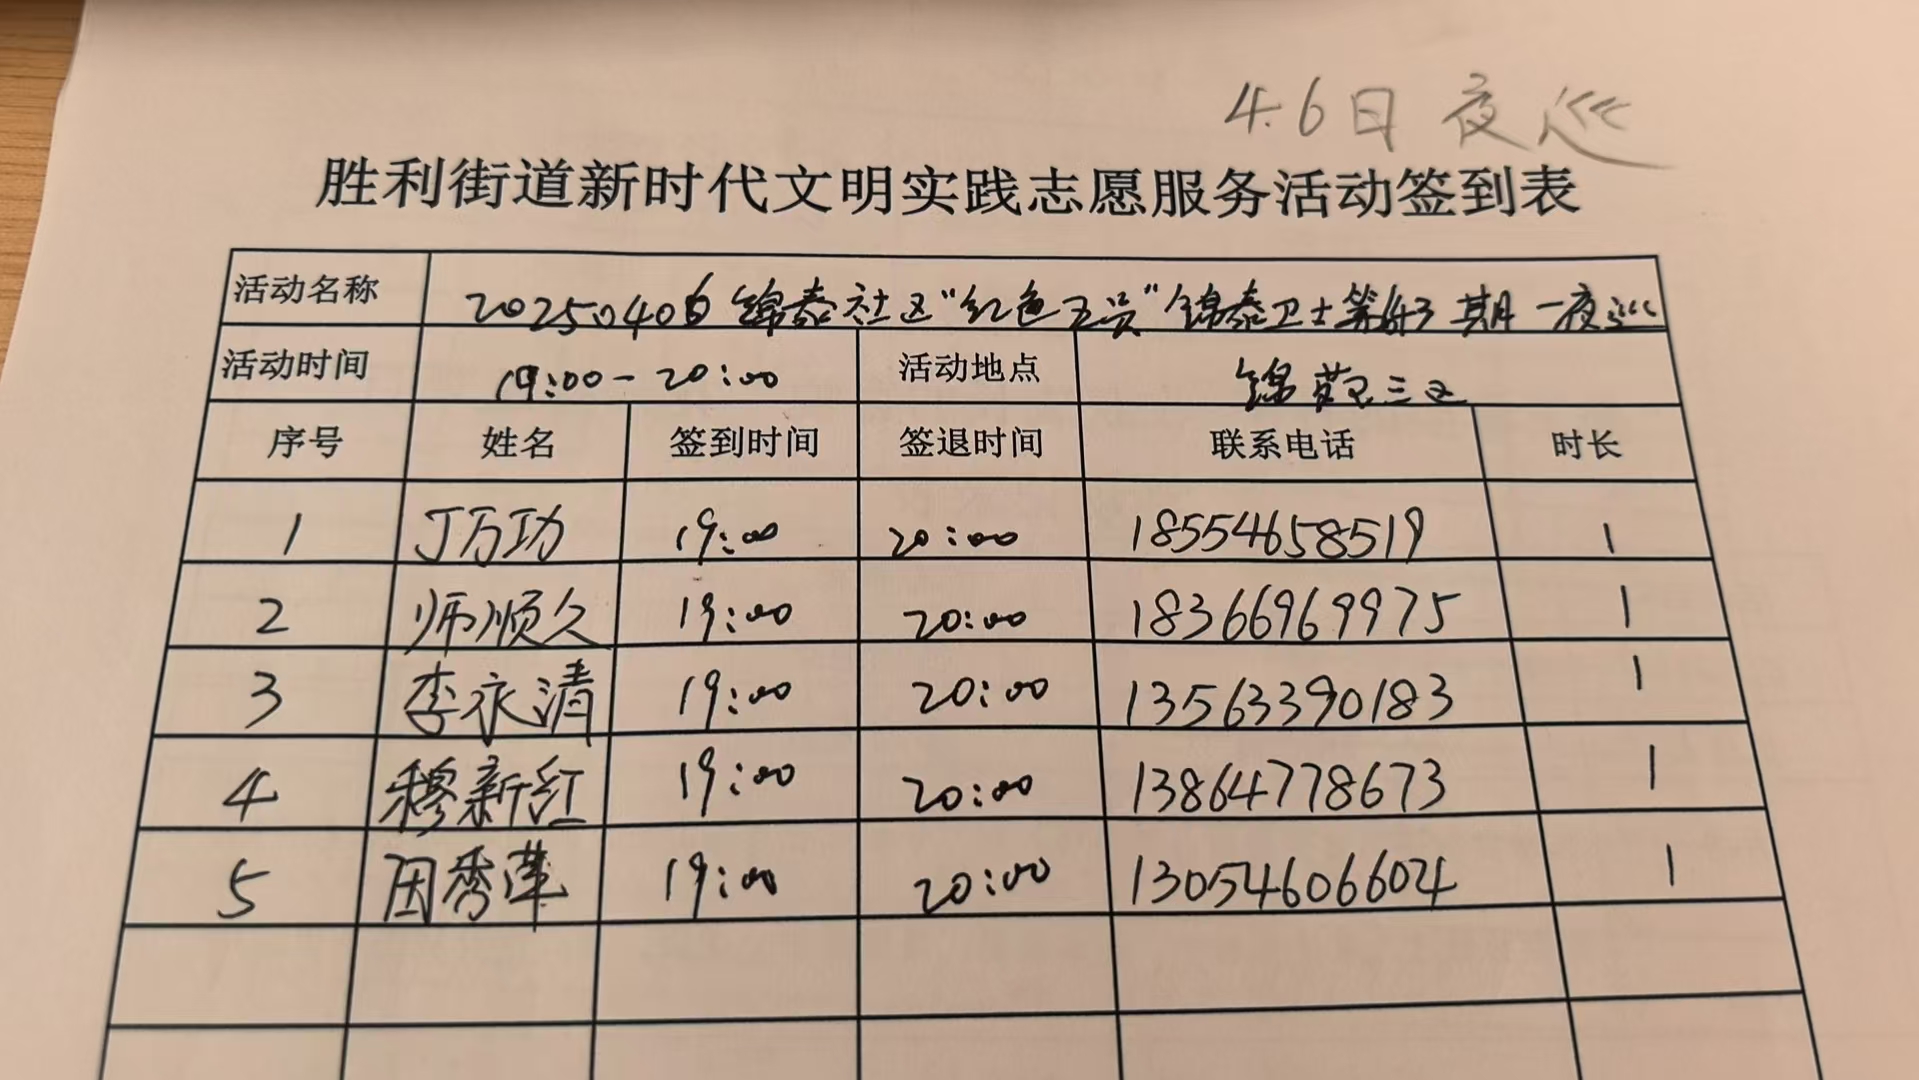 4.6日 夜巡
胜利街道新时代文明实践志愿服务活动签到表
活动名称 20250406锦泰社区“红色卫兵”锦泰卫士第 期—夜巡
活动时间 19:00-20:00 活动地点 锦苑三区
序号 姓名 签到时间 签退时间 联系电话 时长
1 丁万功 19:00 20:00 18554658519 1
2 师顺久 19:00 20:00 18366969975 1
3 李永清 19:00 20:00 13563390183 1
4 穆新红 19:00 20:00 13864778673 1
5 田秀莲 19:00 20:00 13054606604 1